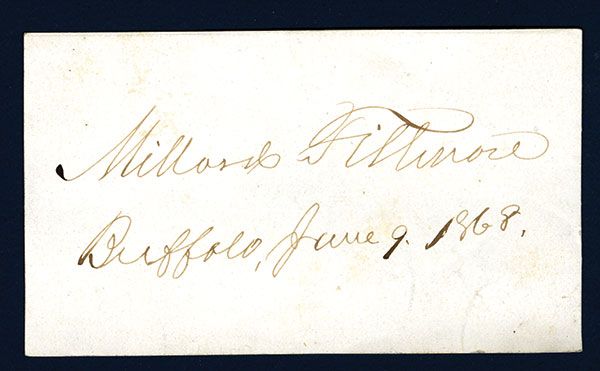 Millard Fillmore
Buffalo, June 9. 1868.